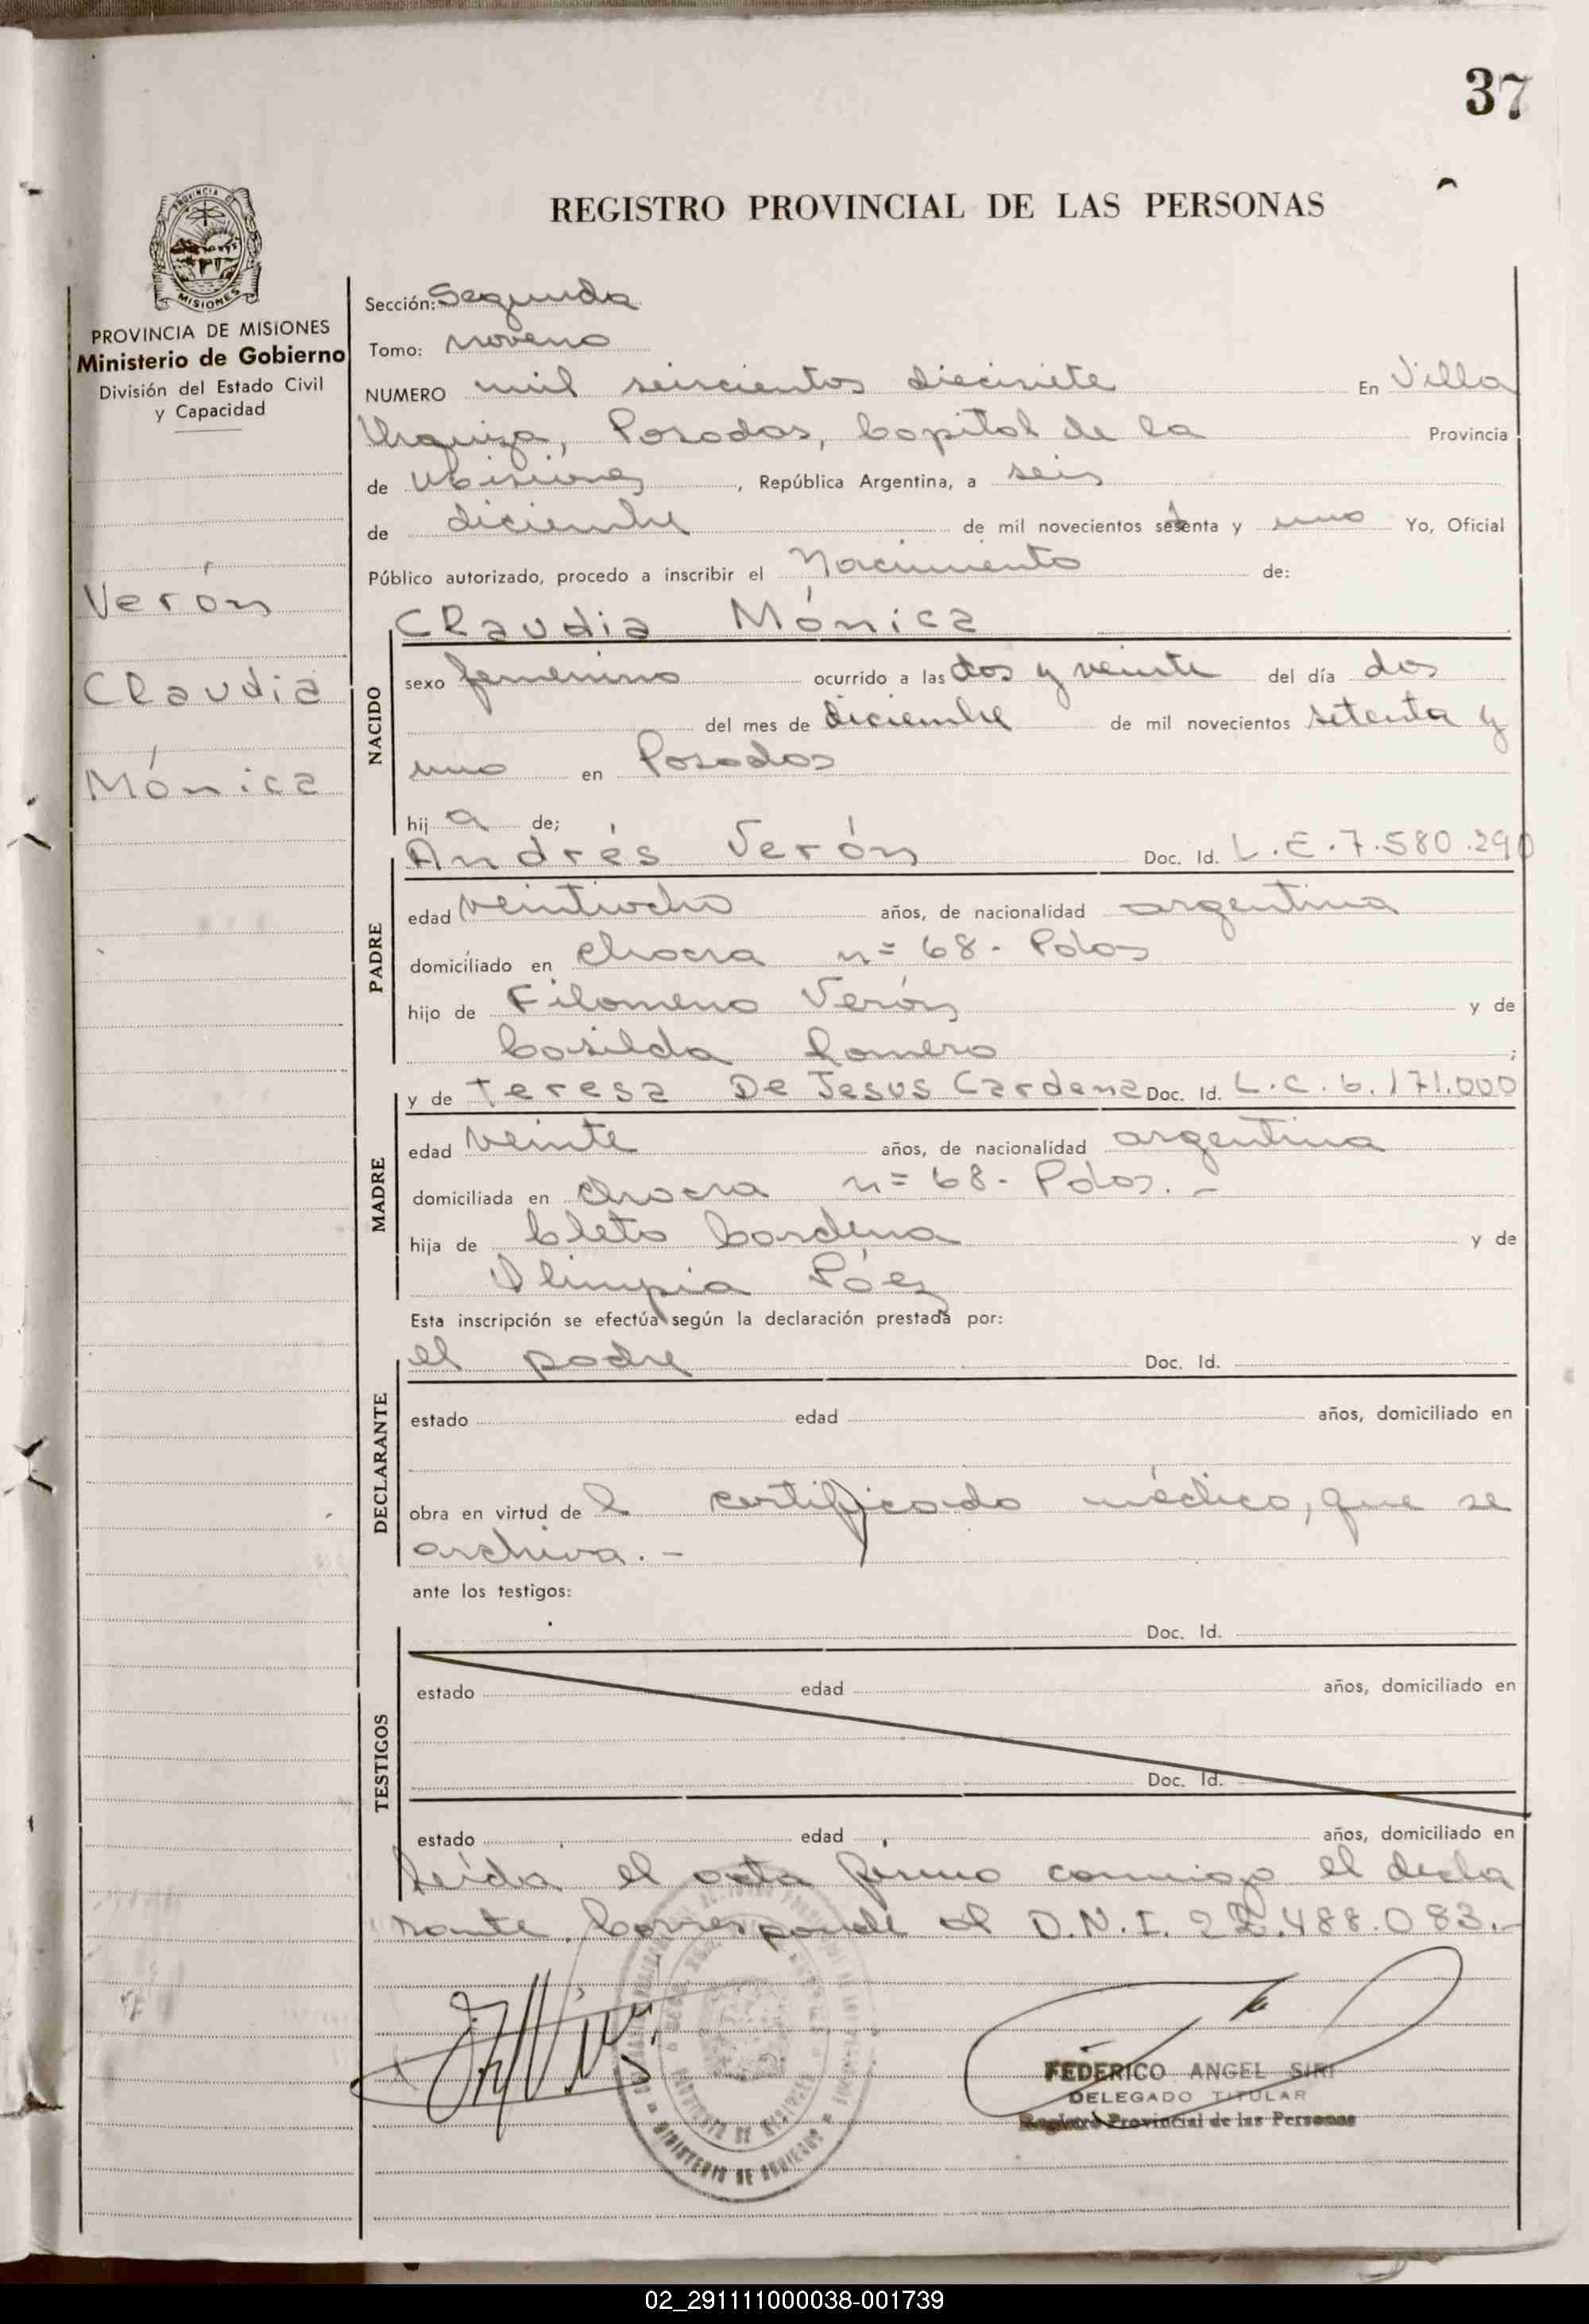 37
REGISTRO PROVINCIAL DE LAS PERSONAS
PROVINCIA
MISIONES
PROVINCIA DE MISIONES
Ministerio de Gobierno
División del Estado Civil
y Capacidad
Verón
Claudia
Mónica
Sección: Segunda
Tomo: noveno
NUMERO mil seiscientos diecisiete En Villa
Urquiza, Posadas, Capital de la Provincia
de Misiones, República Argentina, a seis
de diciembre de mil novecientos setenta y uno Yo, Oficial
Público autorizado, procedo a inscribir el Nacimiento de:
Claudia Mónica
NACIDO
sexo femenino ocurrido a las dos y veinte del día dos
del mes de diciembre de mil novecientos setenta y
uno en Posadas
hij a de;
Andrés Verón Doc. Id. L.E.7.580.290
PADRE
edad veintiocho años, de nacionalidad argentina
domiciliado en chacra n= 68- Pdas
hijo de Filomeno Verón y de
Casilda Romero ;
y de Teresa De Jesus Cardena Doc. Id. L.C.6.171.000
MADRE
edad veinte años, de nacionalidad argentina
domiciliada en chacra n= 68- Pdas.-
hija de Cleto Cardena y de
Olimpia Páez
Esta inscripción se efectúa según la declaración prestada por:
el padre Doc. Id.
DECLARANTE
estado edad años, domiciliado en
obra en virtud de l certificado médico, que se
archiva.-
ante los testigos:
Doc. Id.
TESTIGOS
estado edad años, domiciliado en
Doc. Id.
estado edad años, domiciliado en
Leída el acta firma conmigo el decla
rante. Corresponde al D.N.I. 22.488.083.-
MINISTERIO DE GOBIERNO
PROVINCIA DE MISIONES
FEDERICO ANGEL SIRI
DELEGADO TITULAR
Registro Provincial de las Personas
02_291111000038-001739